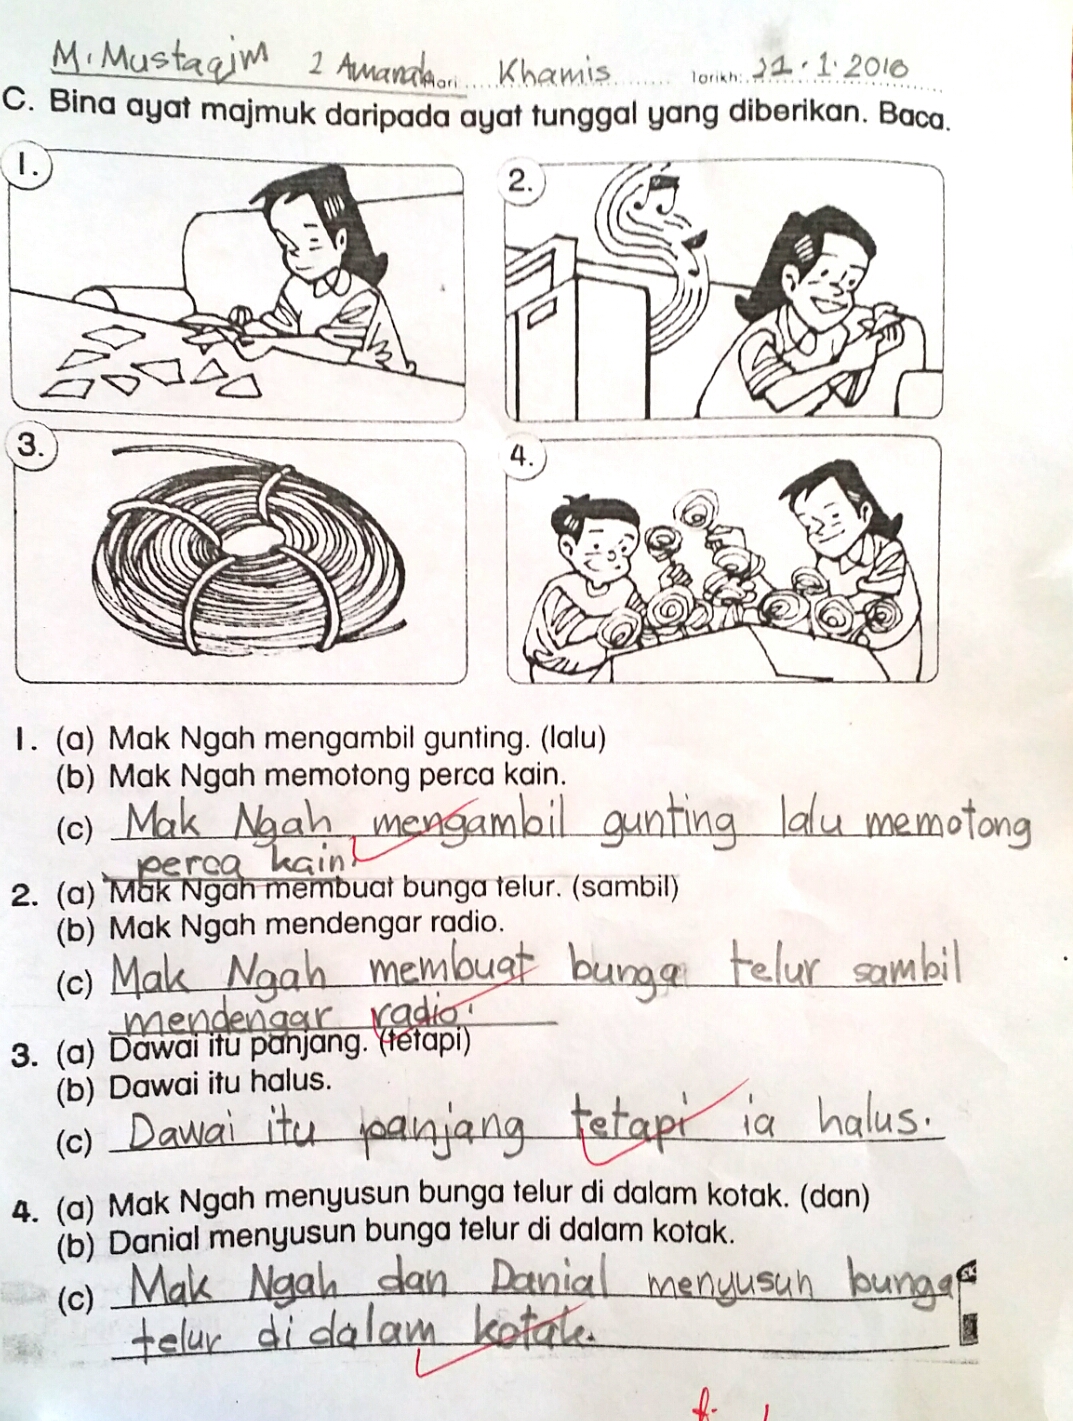 M. Mustaqim 2 Amanah Hari: Khamis Tarikh: 21.1.2016
C. Bina ayat majmuk daripada ayat tunggal yang diberikan. Baca.
1.
2.
3.
4.
1. (a) Mak Ngah mengambil gunting. (lalu)
(b) Mak Ngah memotong perca kain.
(c) Mak Ngah mengambil gunting lalu memotong
perca kain.
2. (a) Mak Ngah membuat bunga telur. (sambil)
(b) Mak Ngah mendengar radio.
(c) Mak Ngah membuat bunga telur sambil
mendengar radio.
3. (a) Dawai itu panjang. (tetapi)
(b) Dawai itu halus.
(c) Dawai itu panjang tetapi ia halus.
4. (a) Mak Ngah menyusun bunga telur di dalam kotak. (dan)
(b) Danial menyusun bunga telur di dalam kotak.
(c) Mak Ngah dan Danial menyusun bunga
telur di dalam kotak.